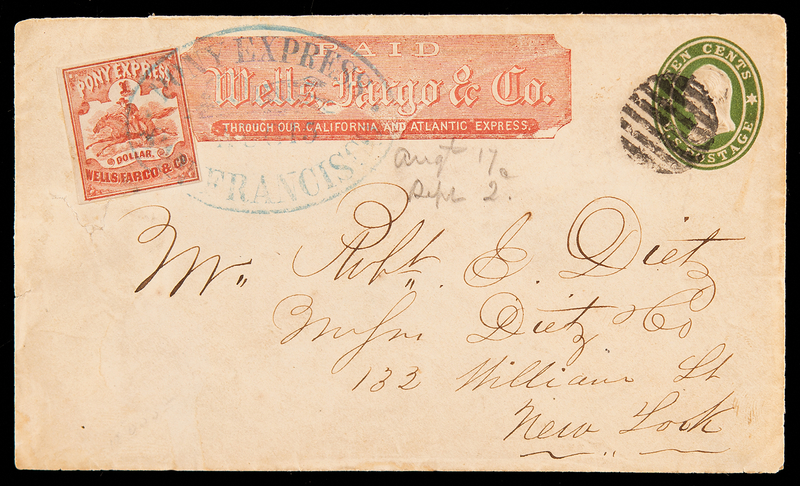 PAID
Wells, Fargo & Co.
THROUGH OUR CALIFORNIA AND ATLANTIC EXPRESS.
PONY EXPRESS
1
DOLLAR.
WELLS, FARGO & CO
PONY EXPRESS
FRANCISCO
TEN CENTS
U.S. POSTAGE
Augt 17
Sept 2.
Mr. Robt. E. Dietz
Dietz & Co
132 William St
New York